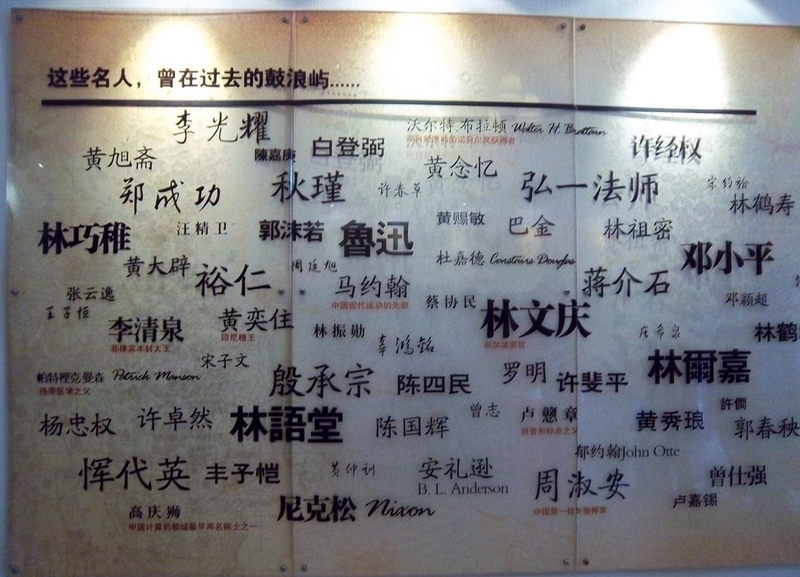 这些名人，曾在过去的鼓浪屿......
李光耀
沃尔特.布拉顿 Walter H. Brattain
黄旭斋
陳嘉庚
白登弼
黄念忆
许经权
郑成功
秋瑾
许春草
弘一法师
宗约翰
林鹤寿
林巧稚
汪精卫
郭沫若
魯迅
黄赐敏
巴金
林祖密
黄大辟
裕仁
周廷旭
杜嘉德 Carstairs Douglas
邓小平
张云逸
马约翰
中国现代运动的先驱
蔡协民
蒋介石
邓颖超
王子恒
李清泉
菲律宾木材大王
黄奕住
印尼糖王
林振勋
辜鸿铭
林文庆
新加坡贤哲
林鹤
宋子文
帕特裡克·曼森 Patrick Manson
热带医学之父
殷承宗
陈四民
罗明
许斐平
林爾嘉
杨忠权
许卓然
林語堂
陈国辉
曾志
卢戆章
拼音和标点之父
黄秀琅
郭春秧
恽代英
丰子恺
黄仲训
安礼逊
B. L. Anderson
郁约翰John Otte
周淑安
中国第一位女指挥家
曾仕强
卢嘉锡
高庆狮
中国计算机领域最早两名院士之一
尼克松 Nixon